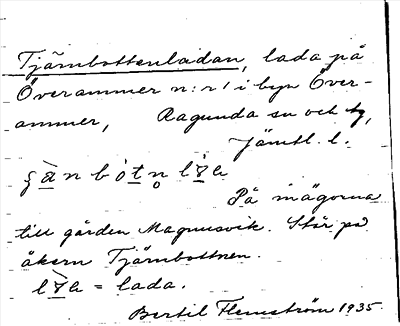 Tjärnbottenladan, lada på
Överammer n:r 1 i byn Över-
ammer, Ragunda sn och tg,
Jämtl. l.
På mägorna
till gården Magnusvik. Står på
åkern Tjärnbottnen.
= lada.
Bertil Flemström 1935.